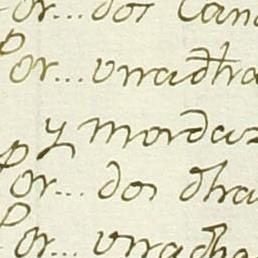 Por... dos Can
Por... vna dha
y mordaz
Por... dos dha
Por... vna dha